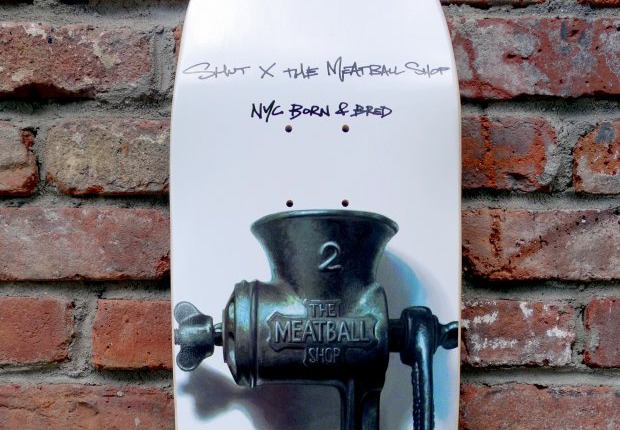 SHUT X THE MEATBALL SHOP
NYC BORN & BRED
2
THE
MEATBALL
SHOP